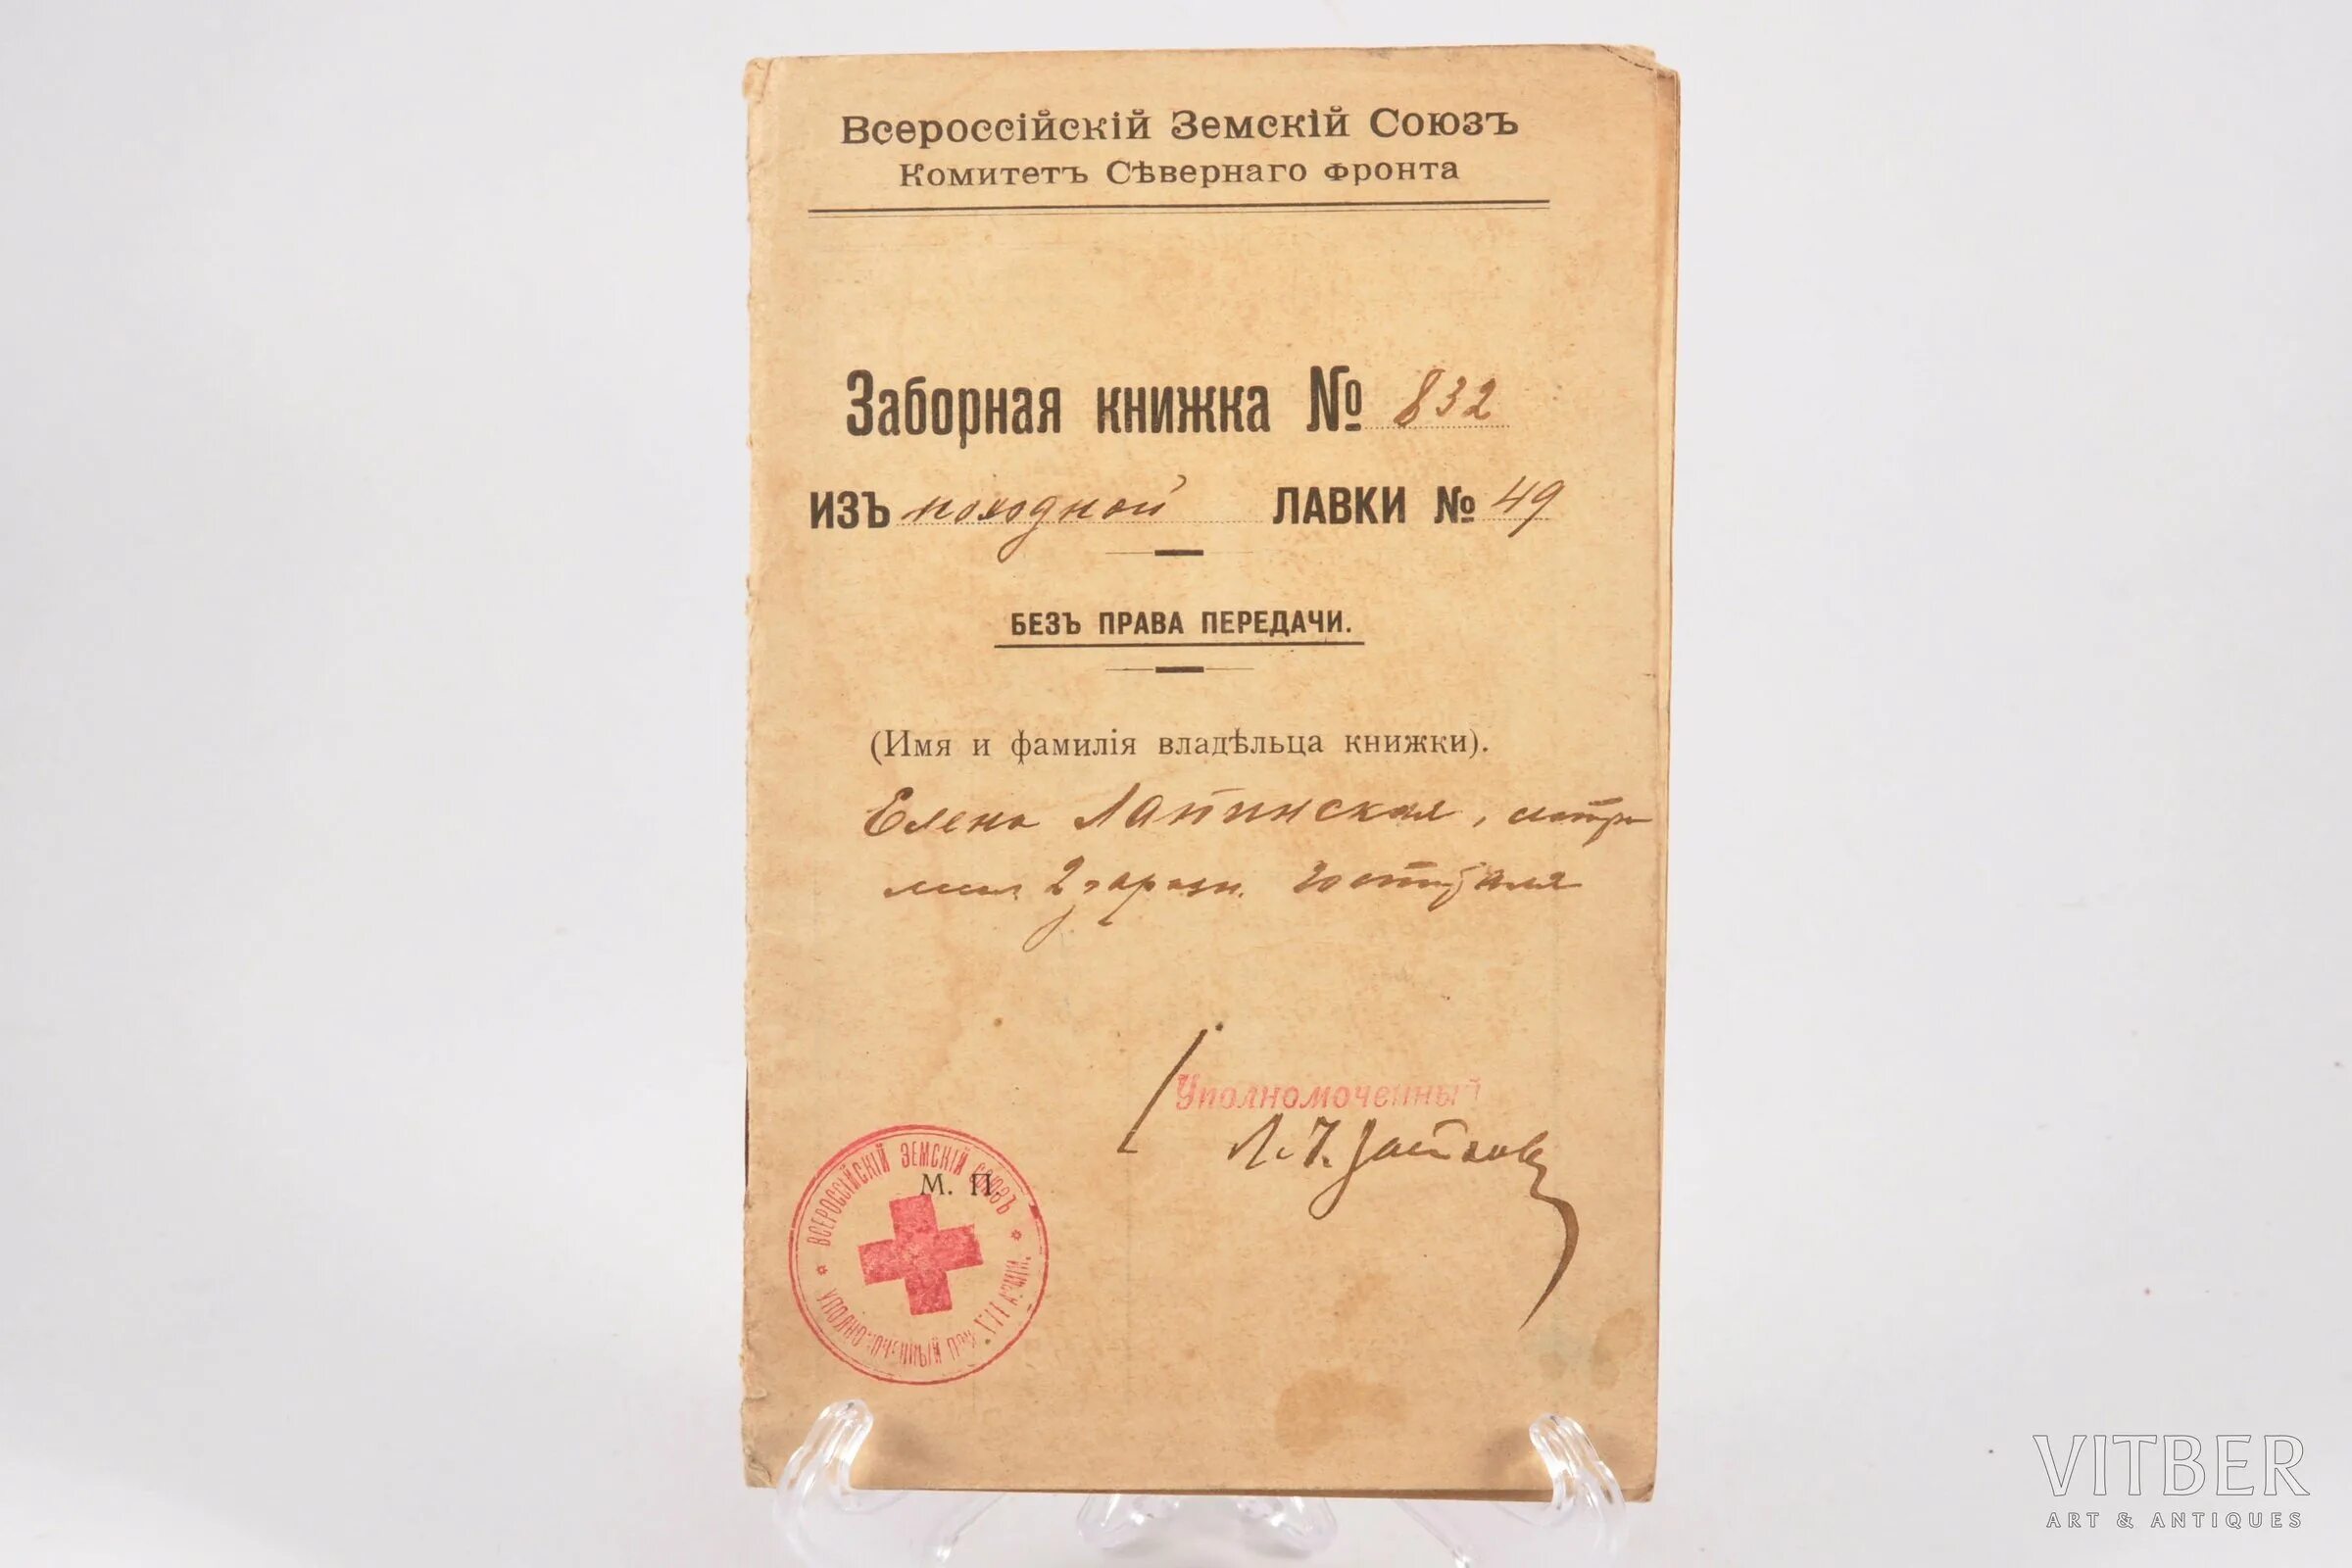 Всероссійскій Земскій Союзъ
Комитетъ Сѣвернаго Фронта
Заборная книжка № 832
изъ походной ЛАВКИ № 49
БЕЗЪ ПРАВА ПЕРЕДАЧИ.
(Имя и фамилія владѣльца книжки).
Елена Лапинская, сестра
2 заразн. госпиталя
Уполномоченный
М. П.
ВСЕРОССІЙСКІЙ ЗЕМСКІЙ СОЮЗЪ
УПОЛНОМОЧЕННЫЙ ПРИ АРМІИ.
VITBER
ART & ANTIQUES